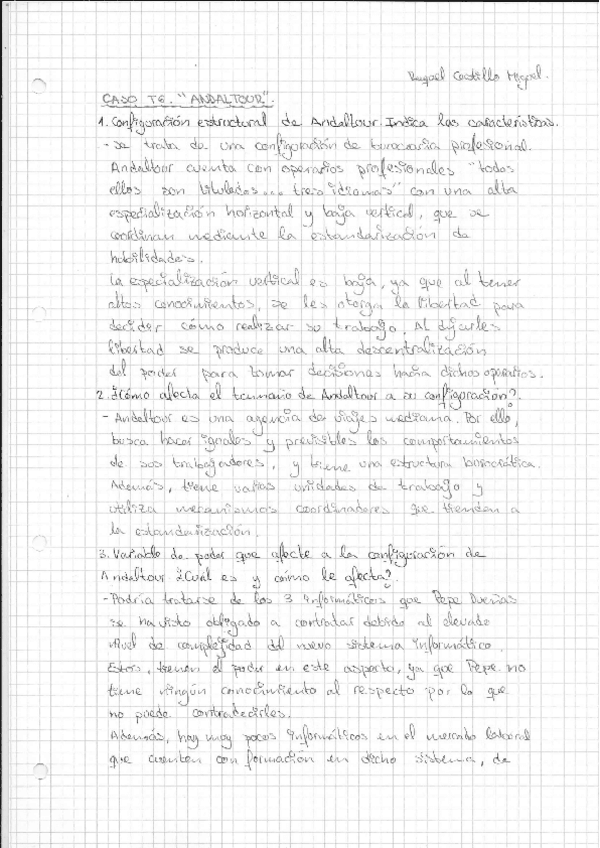 Raquel Castillo Miguel.
CASO T6. "ANDALTOUR".
1. Configuración estructural de Andaltour. Indica las características.
- Se trata de una configuración de burocracia profesional.
Andaltour cuenta con operarios profesionales "todos
ellos son titulados... tres idiomas" con una alta
especialización horizontal y baja vertical, que se
coordinan mediante la estandarización de
habilidades.
La especialización vertical es baja, ya que al tener
altos conocimientos, se les otorga la libertad para
decidir cómo realizar su trabajo. Al dejarles
libertad se produce una alta descentralización
del poder para tomar decisiones hacia dichos operarios.
2. ¿Cómo afecta el tamaño de Andaltour a su configuración?.
- Andaltour es una agencia de viajes mediana. Por ello,
busca hacer iguales y previsibles los comportamientos
de sus trabajadores, y tiene una estructura burocrática.
Además, tiene varias unidades de trabajo y
utiliza mecanismos coordinadores que tienden a
la estandarización.
3. Variable de poder que afecte a la configuración de
Andaltour ¿Cuál es y cómo le afecta?.
- Podría tratarse de los 3 informáticos que Pepe Dueñas
se ha visto obligado a contratar debido al elevado
nivel de complejidad del nuevo sistema informático.
Estos, tienen el poder en este aspecto, ya que Pepe no
tiene ningún conocimiento al respecto por lo que
no puede contradecirles.
Además, hay muy pocos informáticos en el mercado laboral
que cuenten con formación en dicho sistema, de